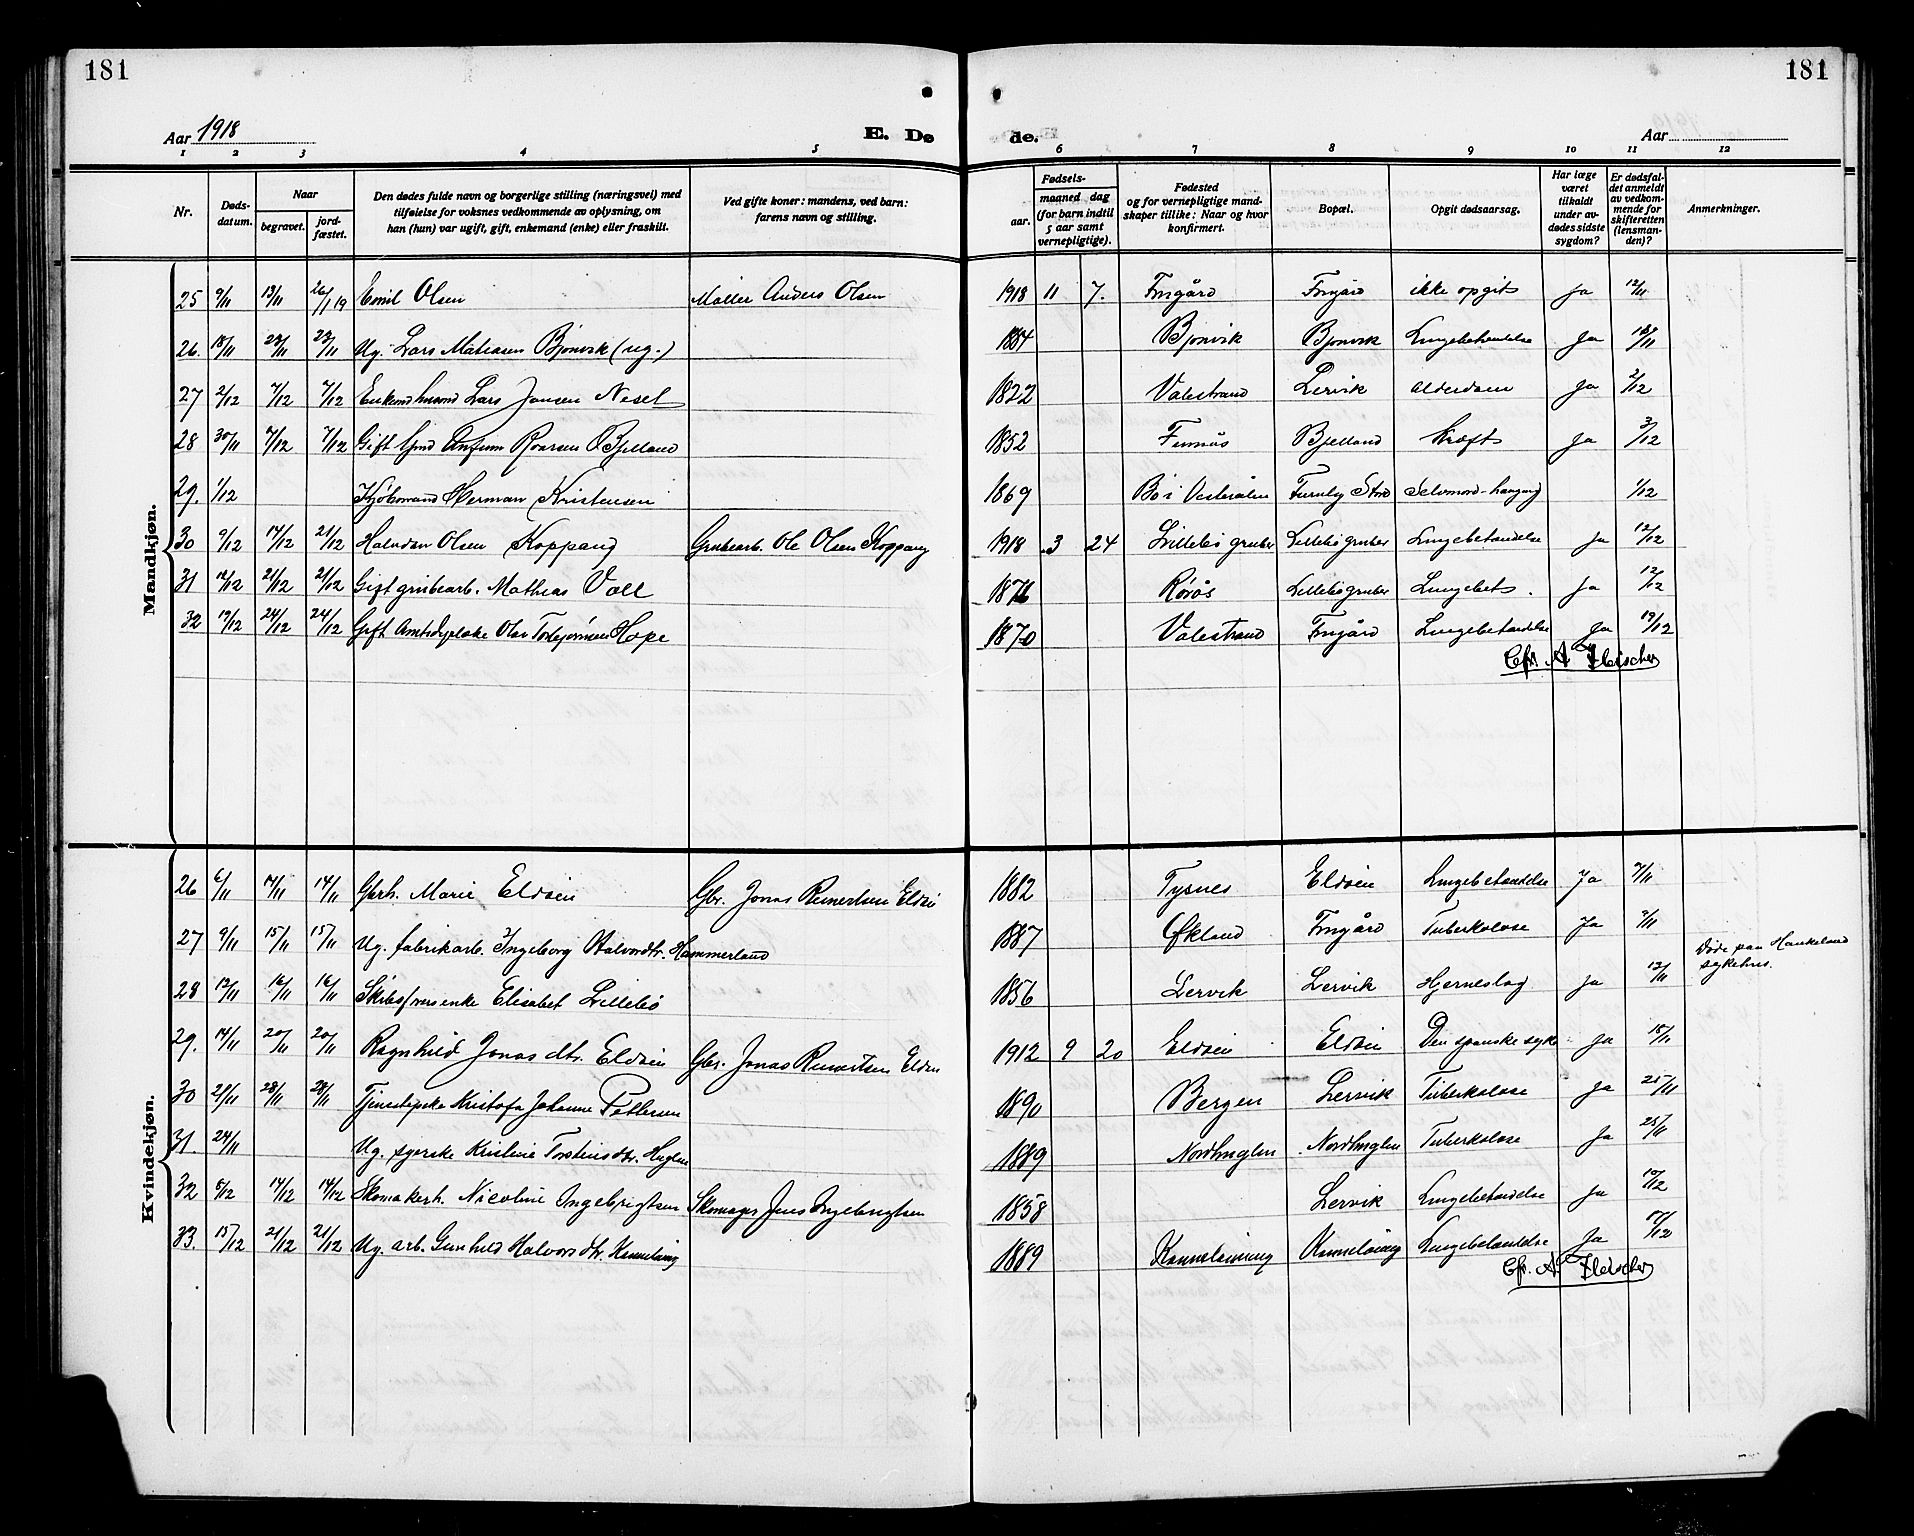 181
181
Aar 1918
E. Dø
de.
Aar
1 2 3 4 5 6 7 8 9 10 11 12
Nr.
Døds-
datum.
Naar
begravet.
jord-
fæstet.
Den dødes fulde navn og borgerlige stilling (næringsvei) med
tilføielse for voksnes vedkommende av oplysning, om
han (hun) var ugift, gift, enkemand (enke) eller fraskilt.
Ved gifte koner: mandens, ved barn:
farens navn og stilling.
Fødsels-
aar.
maaned dag
(for barn indtil
5 aar samt
vernepligtige).
Fødested
og for vernepligtige mand-
skaper tillike: Naar og hvor
konfirmert.
Bopæl.
Opgit dødsaarsag.
Har læge
været
tilkaldt
under av-
dødes sidste
sygdom?
Er dødsfal-
det anmeldt
av vedkom-
mende for
skifteretten
(lensman-
den)?
Anmerkninger.
Mandkjøn.
25 9/11 13/11 26/1 19 Emil Olsen Møller Anders Olsen 1918 11 7. Fmgård Fmgård ikke opgit Ja 12/11
26. 18/11 23/11 23/11 Ug. Lars Matiasen Bjønvik (ug.) 1884 Bjonvik Bjonvik Lungebetændelse Ja 18/11
27 2/12 7/12 7/12 Enkemd husmd Lars Jansen Nesel 1822 Valestrand Lervik Alderdom Ja 2/12
28 30/11 7/12 7/12 Gift Roarsen Bjelland 1852 Bjelland Kræft Ja 3/12
29. 1/12 Kjøbmand Herman Kristensen 1869 Bø i Vesterålen Selvmord-hængng 1/12
30 9/12 14/12 21/12 Halvdan Olsen Koppang Grubearb. Ole Olsen Koppang 1918 3 24 Lillebø gruber Lillebø gruber Lungebetændelse Ja 12/12
31 12/12 21/12 21/12 Gift grubearb. Mathias Voll 1876 Røros Lillebø gruber Lungebet. Ja 12/12
32 19/12 24/12 24/12 Gift Amtsdyrlæke Olav Torbjørnsen Hope 1870 Valestrand Fmgård Lungebetændelse Ja 19/12
Cfr. A Fleischer
Kvindekjøn.
26 6/11 14/11 14/11 Gbrh. Marie Eldøen Gbr. Jonas Reinertsen Eldøi 1882 Tysnes Eldøen Lungebetændelse Ja 7/11
27 9/11 15/11 15/11 Ug. fabrikarb. Ingeborg Halvordtr. Hammerland 1887 Økland Fmgård Tuberkolose Ja 9/11 Døde paa Haukeland
sykehus.
28 12/11 16/11 16/11 Skibsførerenke Elisabet Lillebø 1856 Lervik Lervik Hjerneslag Ja 12/11
29. 14/11 20/11 20/11 Ragnhild Jonas dtr. Eldøen Gbr. Jonas Reinertsen Eldøen 1912 9 20 Eldøen Eldøen Den spanske syke Ja 15/11
30 21/11 28/11 28/11 Tjenestepike Kristofa Johanne Pettersen 1890 Bergen Lervik Tuberkolose Ja 25/11
31. 24/11 Ug. syerske Kristine Torstensdtr. Huglen 1889 Nordhuglen Nordhuglen Tuberkolose Ja 25/11
32 8/12 14/12 14/12 Skomakerh. Nicoline Ingebrigtsen Skomager Jens Ingebrigtsen 1858 Lervik Lungebetændelse Ja 10/12
33 15/12 21/12 21/12 Ug. arb. Gunhild Halvorsdtr. Kanneløning 1889 Kanneløning Kanneløning Lungebetændelse Ja 17/12
Cfr. A. Fleischer